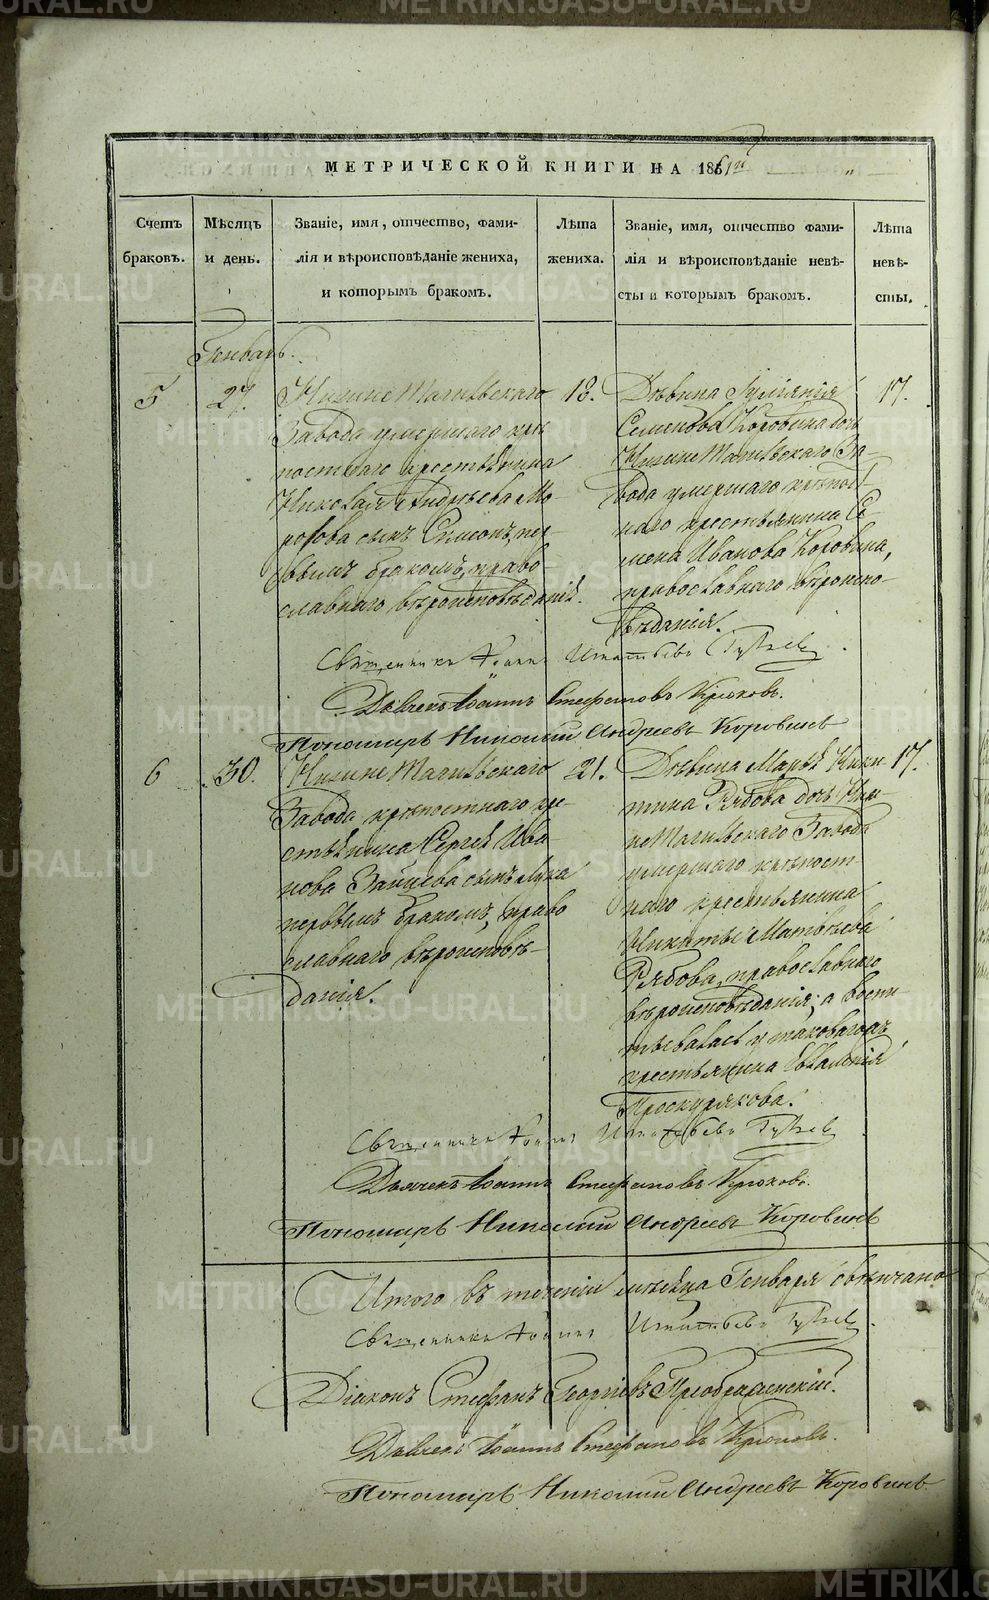 METRIKI.GASO-URAL.RU
МЕТРИЧЕСКОЙ КНИГИ НА 1861 годъ
Счетъ браковъ.
Мѣсяцъ и день.
Званіе, имя, отчество, фами-
лія и вѣроисповѣданіе жениха,
и которымъ бракомъ.
Лѣта жениха.
Званіе, имя, отчество фами-
лія и вѣроисповѣданіе невѣ-
сты и которымъ бракомъ.
Лѣта невѣ-
сты.
Генварь.
5
27.
Нижне Тагильскаго
Завода умершаго крѣ
постнаго крестьянина
Николая Андреева Мо-
розова сынъ Симеонъ, пер-
вымъ бракомъ, право-
славнаго вѣроисповѣданія.
18.
Дѣвица Іуліянія
Семенова Коровина дочь
Нижне Тагильскаго За-
вода умершаго крѣпост-
наго крестьянина Се-
мена Иванова Коровина,
православнаго вѣроиспо-
вѣданія.
17.
Священникъ Іоаннъ Игнатьевъ
Дьячекъ Іоаннъ Стефановъ Крюковъ.
Пономарь Николай Андреевъ Коровинъ
6
30.
Нижне Тагильскаго
Завода крѣпостнаго кре-
стьянина Сергѣя Ива
нова Зайцева сынъ Лука
первымъ бракомъ, право
славнаго вѣроисповѣ-
данія.
21.
Дѣвица Марья Ники
тина Рябова дочь Ниж-
не Тагильскаго Завода
умершаго крѣпост-
наго крестьянина
Никиты Матвѣева
Рябова, православнаго
вѣроисповѣданія; а воспи-
тывалась у таковагожъ
крестьянина
Проскурякова.
17.
Священникъ Іоаннъ Игнатьевъ
Дьячекъ Іоаннъ Стефановъ Крюковъ.
Пономарь Николай Андреевъ Коровинъ
Итого въ теченіи мѣсяца Генваря свѣнчано
Священникъ Іоаннъ Игнатьевъ
Діаконъ Стефанъ Георгіевъ Преображенскій.
Дьячекъ Іоаннъ Стефановъ Крюковъ.
Пономарь Николай Андреевъ Коровинъ